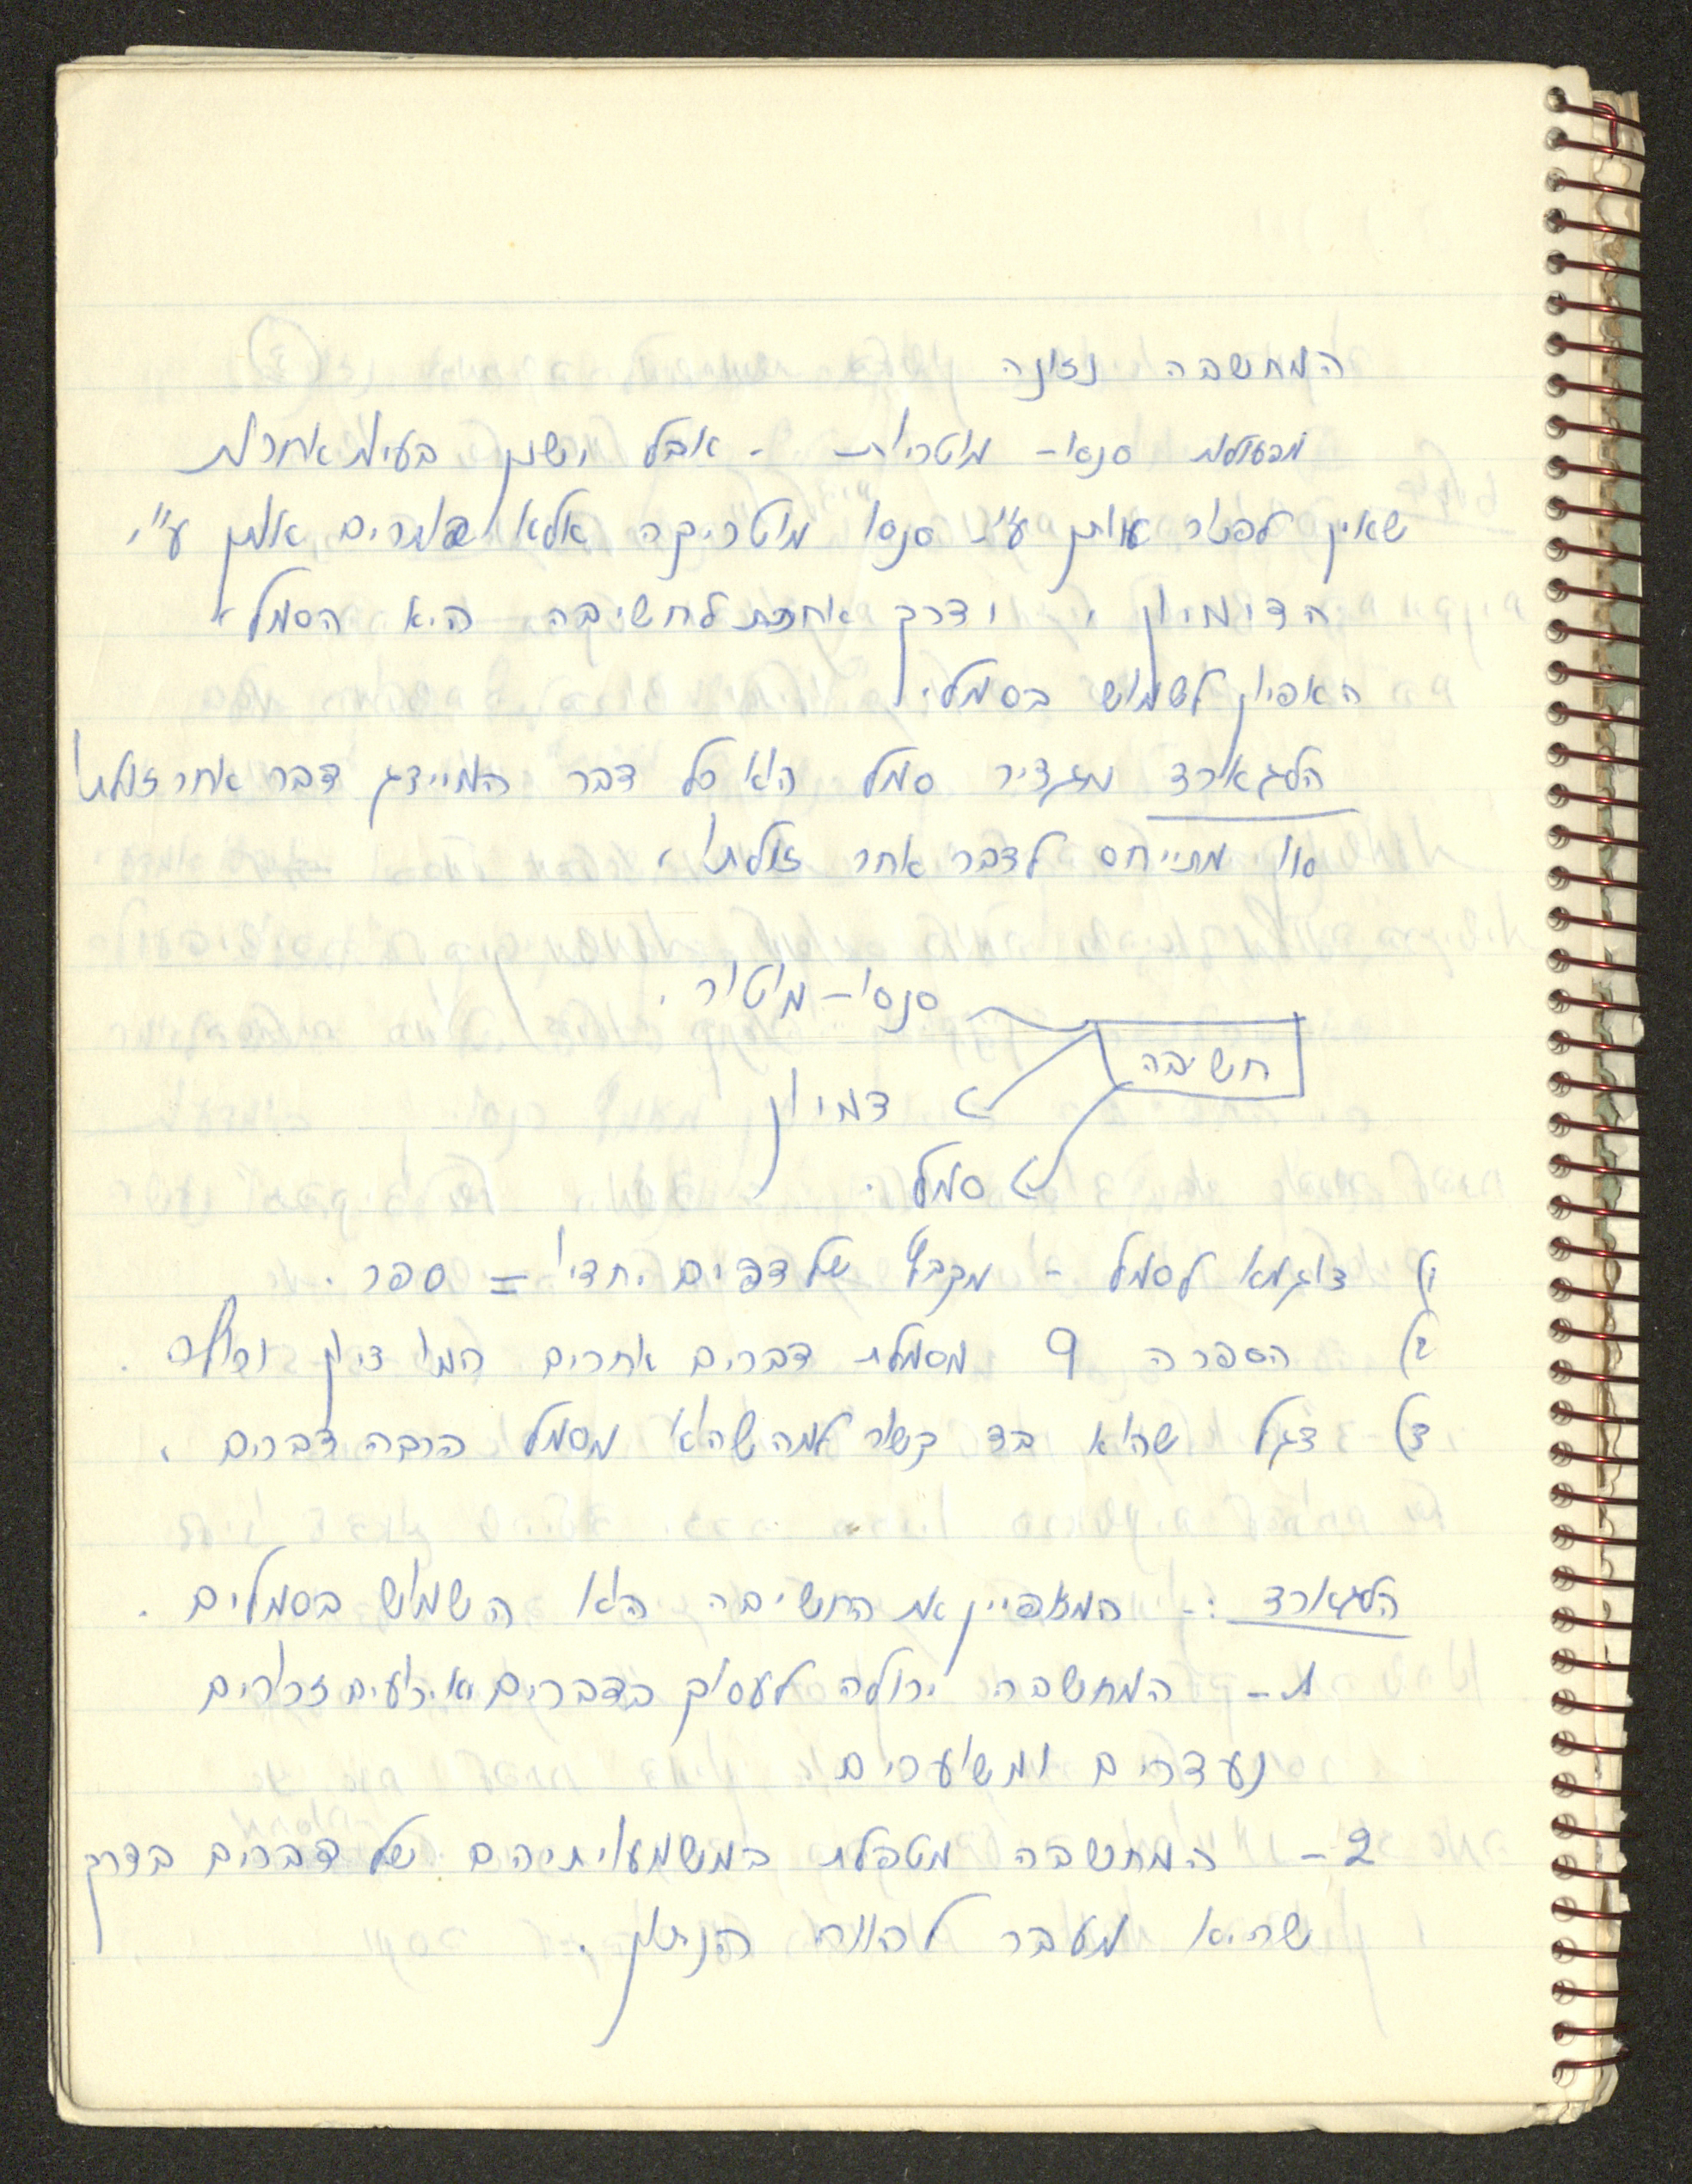 המחשבה נזונה
מפעולות סנסו- מוטריות - אבל ישנן בעיות אחרות
שאין לפתור אותן ע"י סנסו מוטריקה אלא פותרים אותן ע"י
הדימיון, ודרך אחרת לחשיבה היא הסמל,
האפיון לשמוש בסמל.
הלגארד מגדיר סמל הוא כל דבר המייצג דבר אחר זולתו
או מתייחס לדבר אחר זולתו,
סנסו-מוטור.
חשיבה
דמיון
סמל.
דוגמא לסמל - מקבץ של דפים יחדיו = ספר.
הספרה 9 מסמלת דברים אחרים כמו ציון
דגל שהוא בד קשור למה שהוא מסמל הרבה דברים,
הלגארד :- המאפיין את החשיבה הוא השמוש בסמלים.
המחשבה יכולה לעסוק בדברים ואירועים זכורים
נעדרים ומשוערים
2- המחשבה מטפלת במשמעויותיהם של דברים בדרך
שהיא מעבר להווה הניתן.